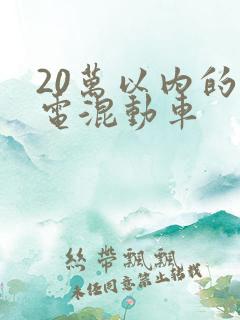 20萬以内的
電混動車
絲帶飄飄
未任同意禁止轉載